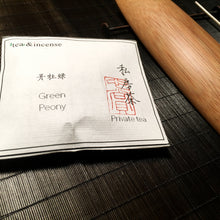 tea&incense
青牡蝶
Green
Peony
私房茶
Private tea